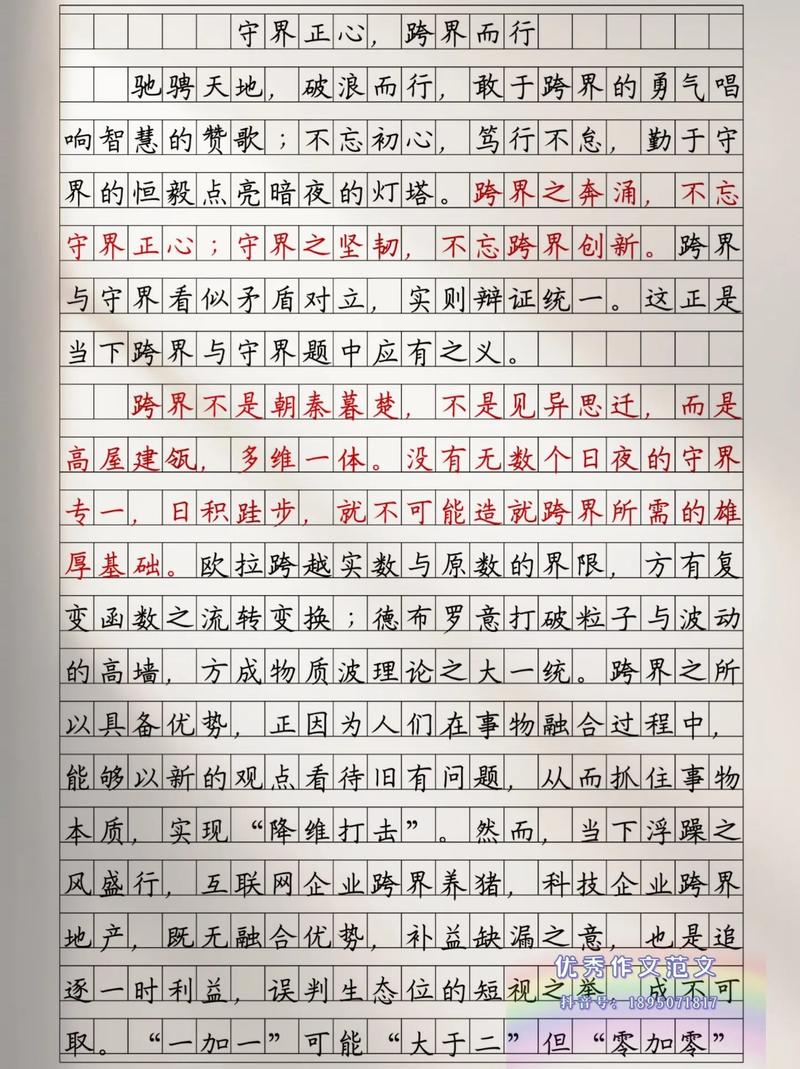 守界正心，跨界而行
驰骋天地，破浪而行，敢于跨界的勇气唱
响智慧的赞歌；不忘初心，笃行不怠，勤于守
界的恒毅点亮暗夜的灯塔。跨界之奔涌，不忘
守界正心；守界之坚韧，不忘跨界创新。跨界
与守界看似矛盾对立，实则辩证统一。这正是
当下跨界与守界题中应有之义。
跨界不是朝秦暮楚，不是见异思迁，而是
高屋建瓴，多维一体。没有无数个日夜的守界
专一，日积跬步，就不可能造就跨界所需的雄
厚基础。欧拉跨越实数与原数的界限，方有复
变函数之流转变换；德布罗意打破粒子与波动
的高墙，方成物质波理论之大一统。跨界之所
以具备优势，正因为人们在事物融合过程中，
能够以新的观点看待旧有问题，从而抓住事物
本质，实现“降维打击”。然而，当下浮躁之
风盛行，互联网企业跨界养猪，科技企业跨界
地产，既无融合优势，补益缺漏之意，也是追
逐一时利益，误判生态位的短视之举 成不可
取。“一加一”可能“大于二”但“零加零”
优秀作文范文
抖音号：1895071817